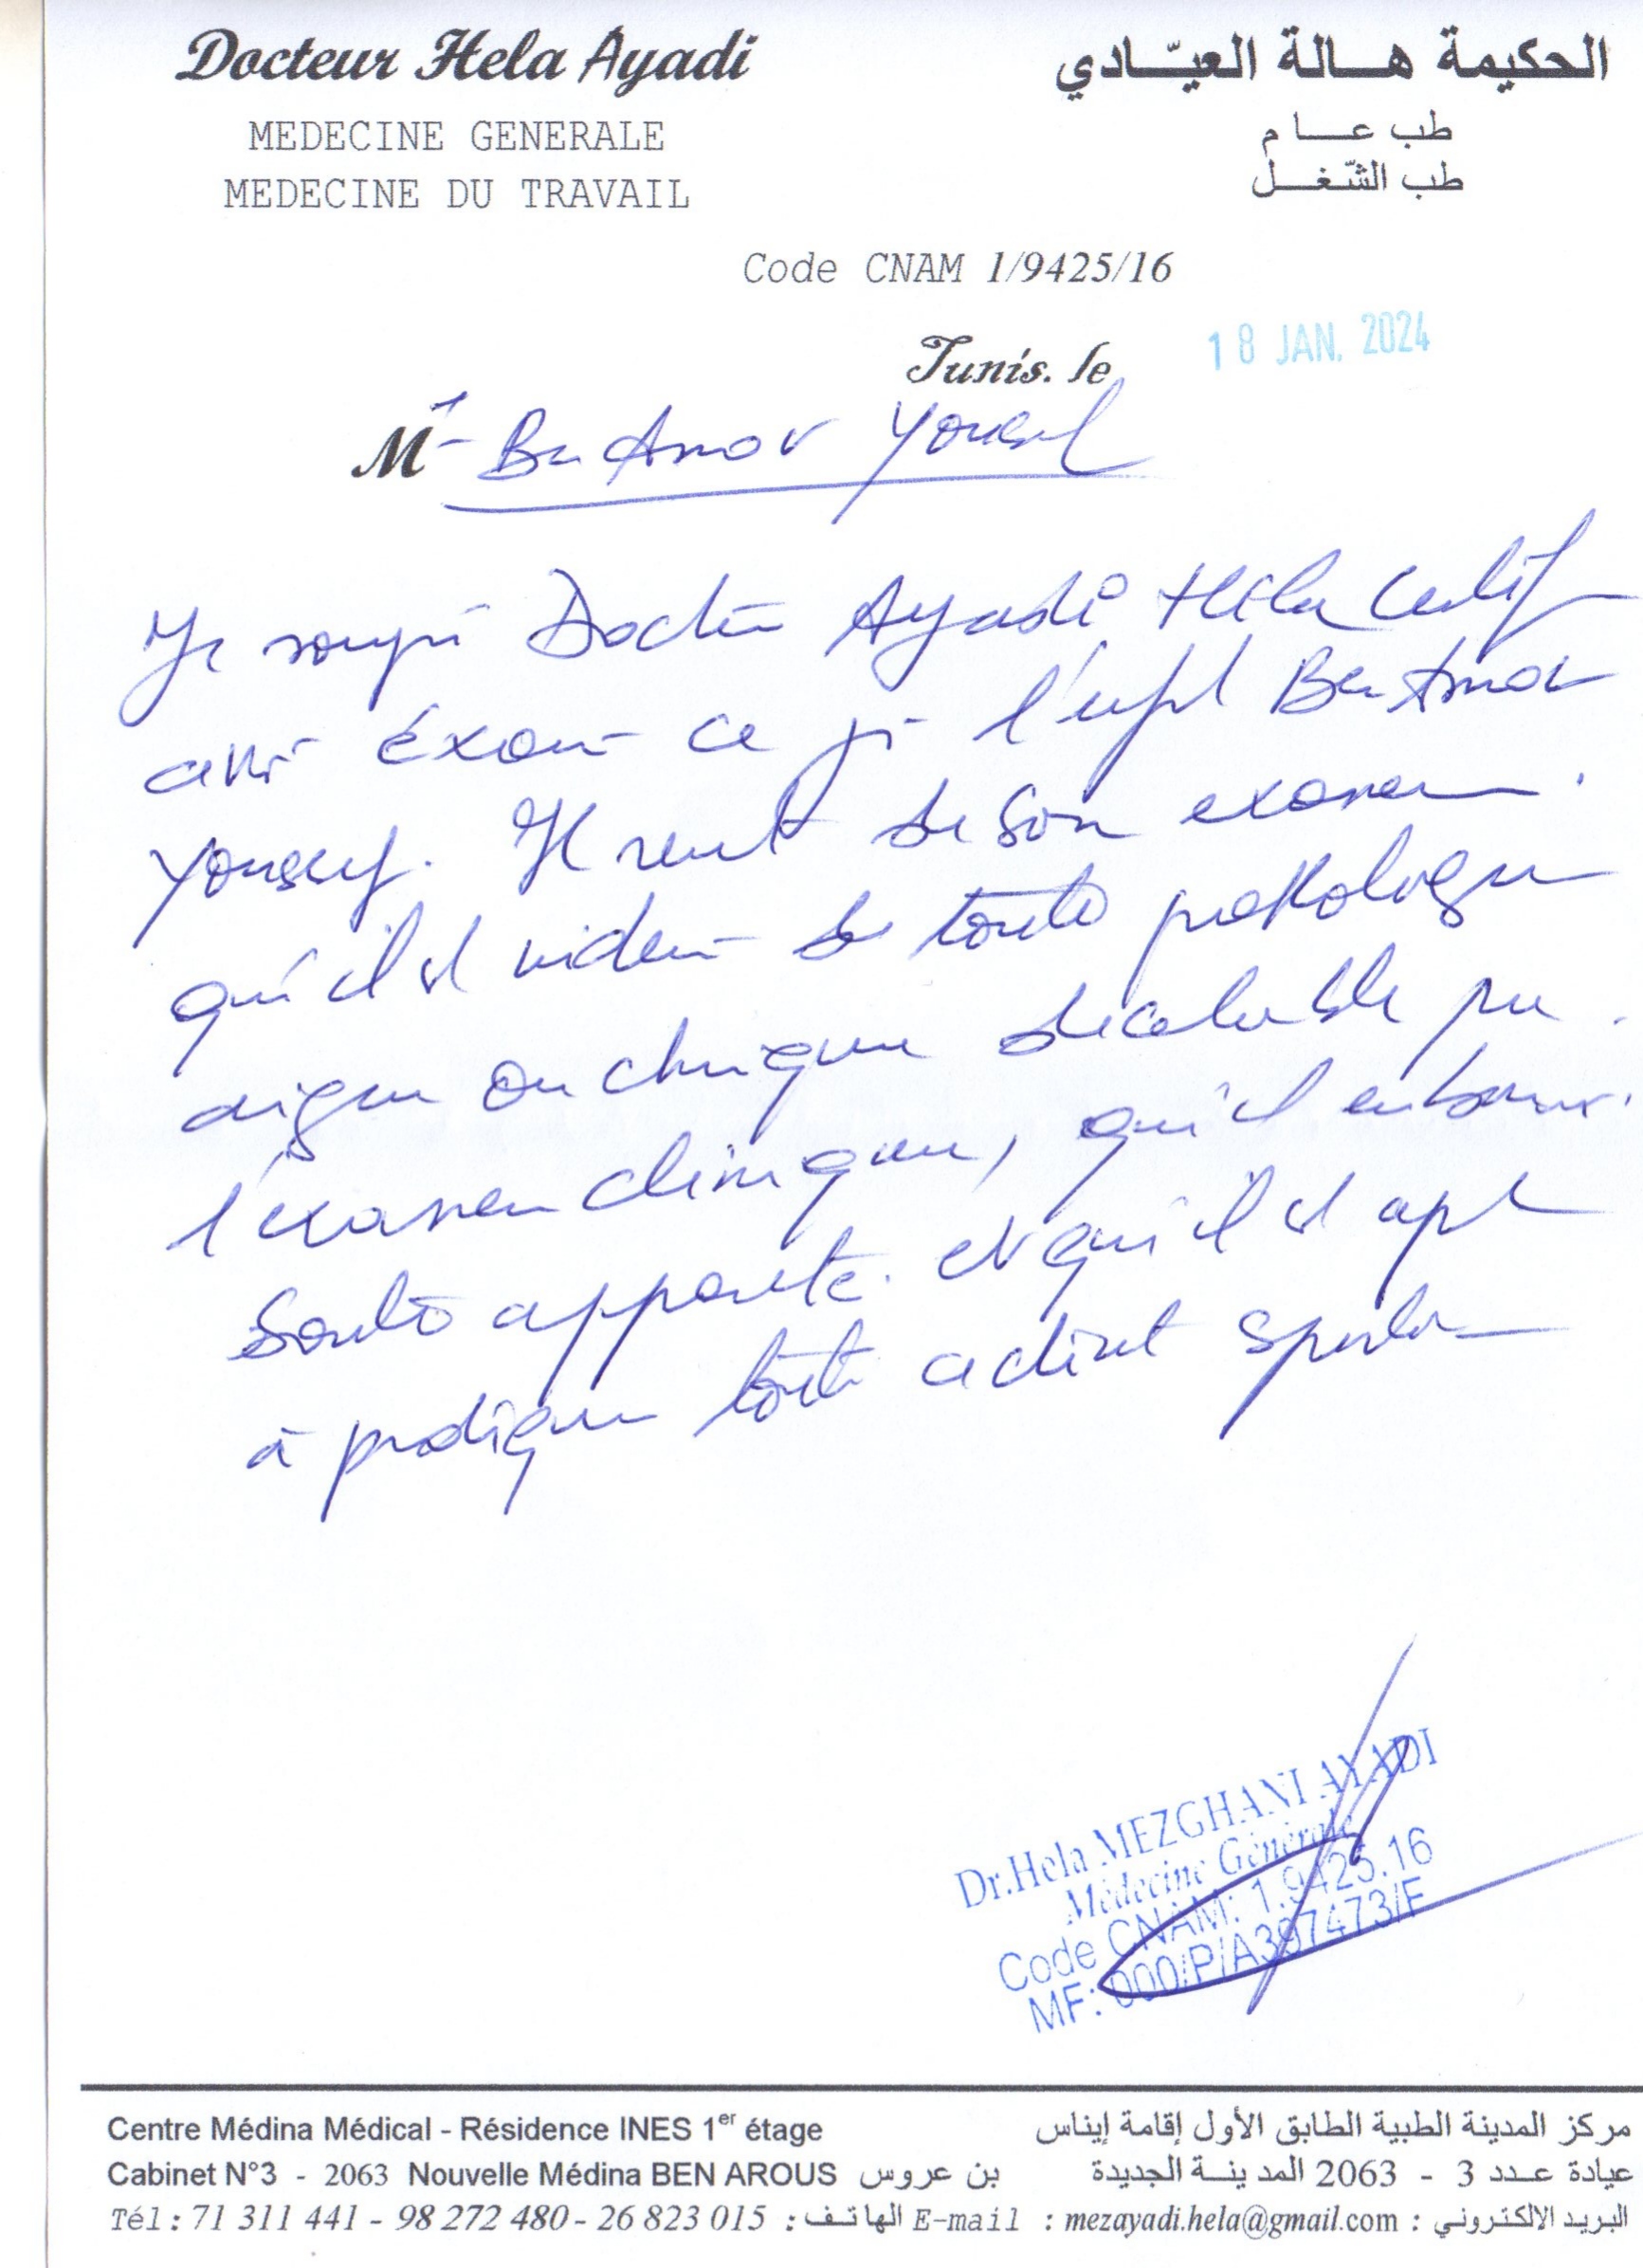 Docteur Hela Ayadi
الحكيمة هالة العيّادي
MEDECINE GENERALE
طب عام
MEDECINE DU TRAVAIL
طب الشّغل
Code CNAM 1/9425/16
Tunis. le 18 JAN. 2024
M Ben Amor Youssef
Je soussigné Docteur Ayadi Hela Certifie
avoir examiné ce jour l'enfant Ben Amor
Youssef. Il résulte de son examen
qu'il est indemne de toute pathologie
aigue ou chronique décelable par
l'examen clinique, qu'il en bonne
Santé apparente. et qu'il est apte
à pratiquer toute activité sportive
Dr.Hela MEZGHANI AYADI
Médecine Générale
Code CNAM: 1.9425.16
MF: 000/P/A397473/F
Centre Médina Médical - Résidence INES 1er étage
مركز المدينة الطبية الطابق الأول إقامة إيناس
Cabinet N°3 - 2063 Nouvelle Médina BEN AROUS
عيادة عدد 3 - 2063 المدينة الجديدة بن عروس
Tél : 71 311 441 - 98 272 480 - 26 823 015 : الهاتف
E-mail : mezayadi.hela@gmail.com : البريد الالكتروني